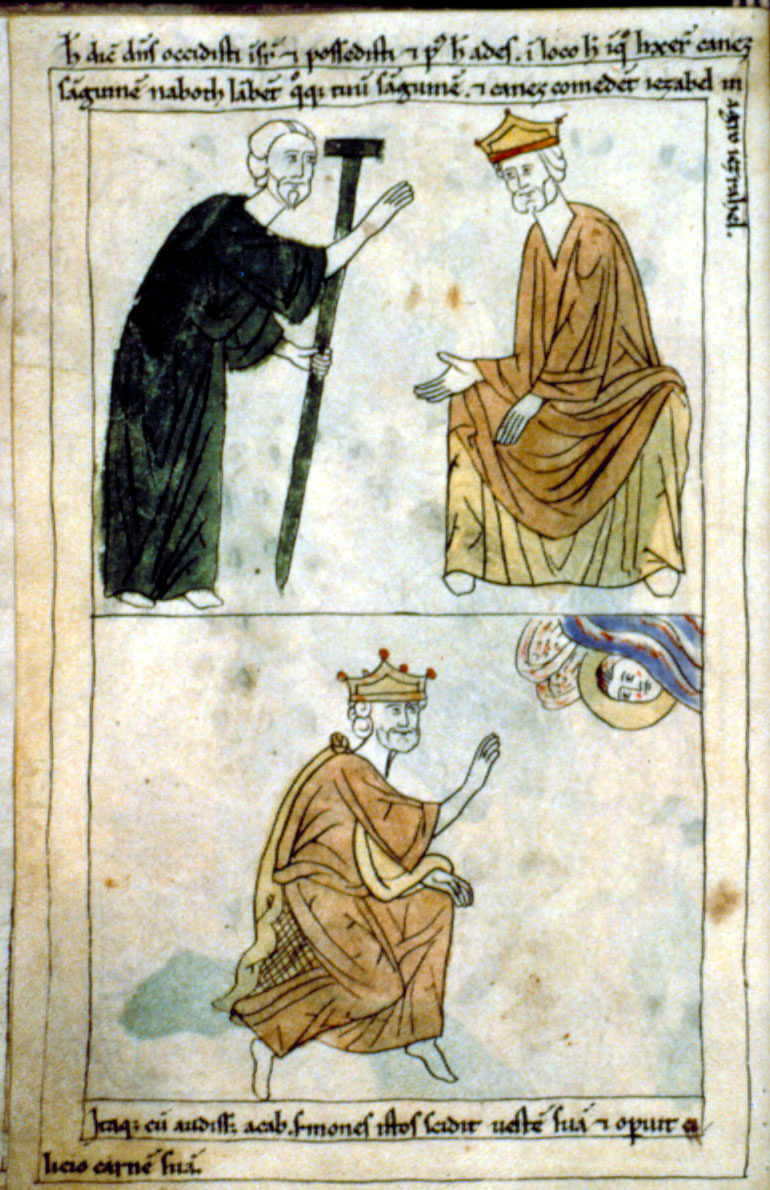 h̄ dic̄ dn̄s occidisti isr̄ ⁊ possedisti ⁊ pꝰ h̄ ades. ī loco h̄ īq̊ lixer̄ canez
sāguinē naboth lābēt q̊qꝫ tuū sāguinē. ⁊ canez comedēt iezabel in
agro iezrabel.
Itaqꝫ cū audissꝫ acab. s̄mones istos scidit uestē suā ⁊ operuit ci
licio carnē suā.